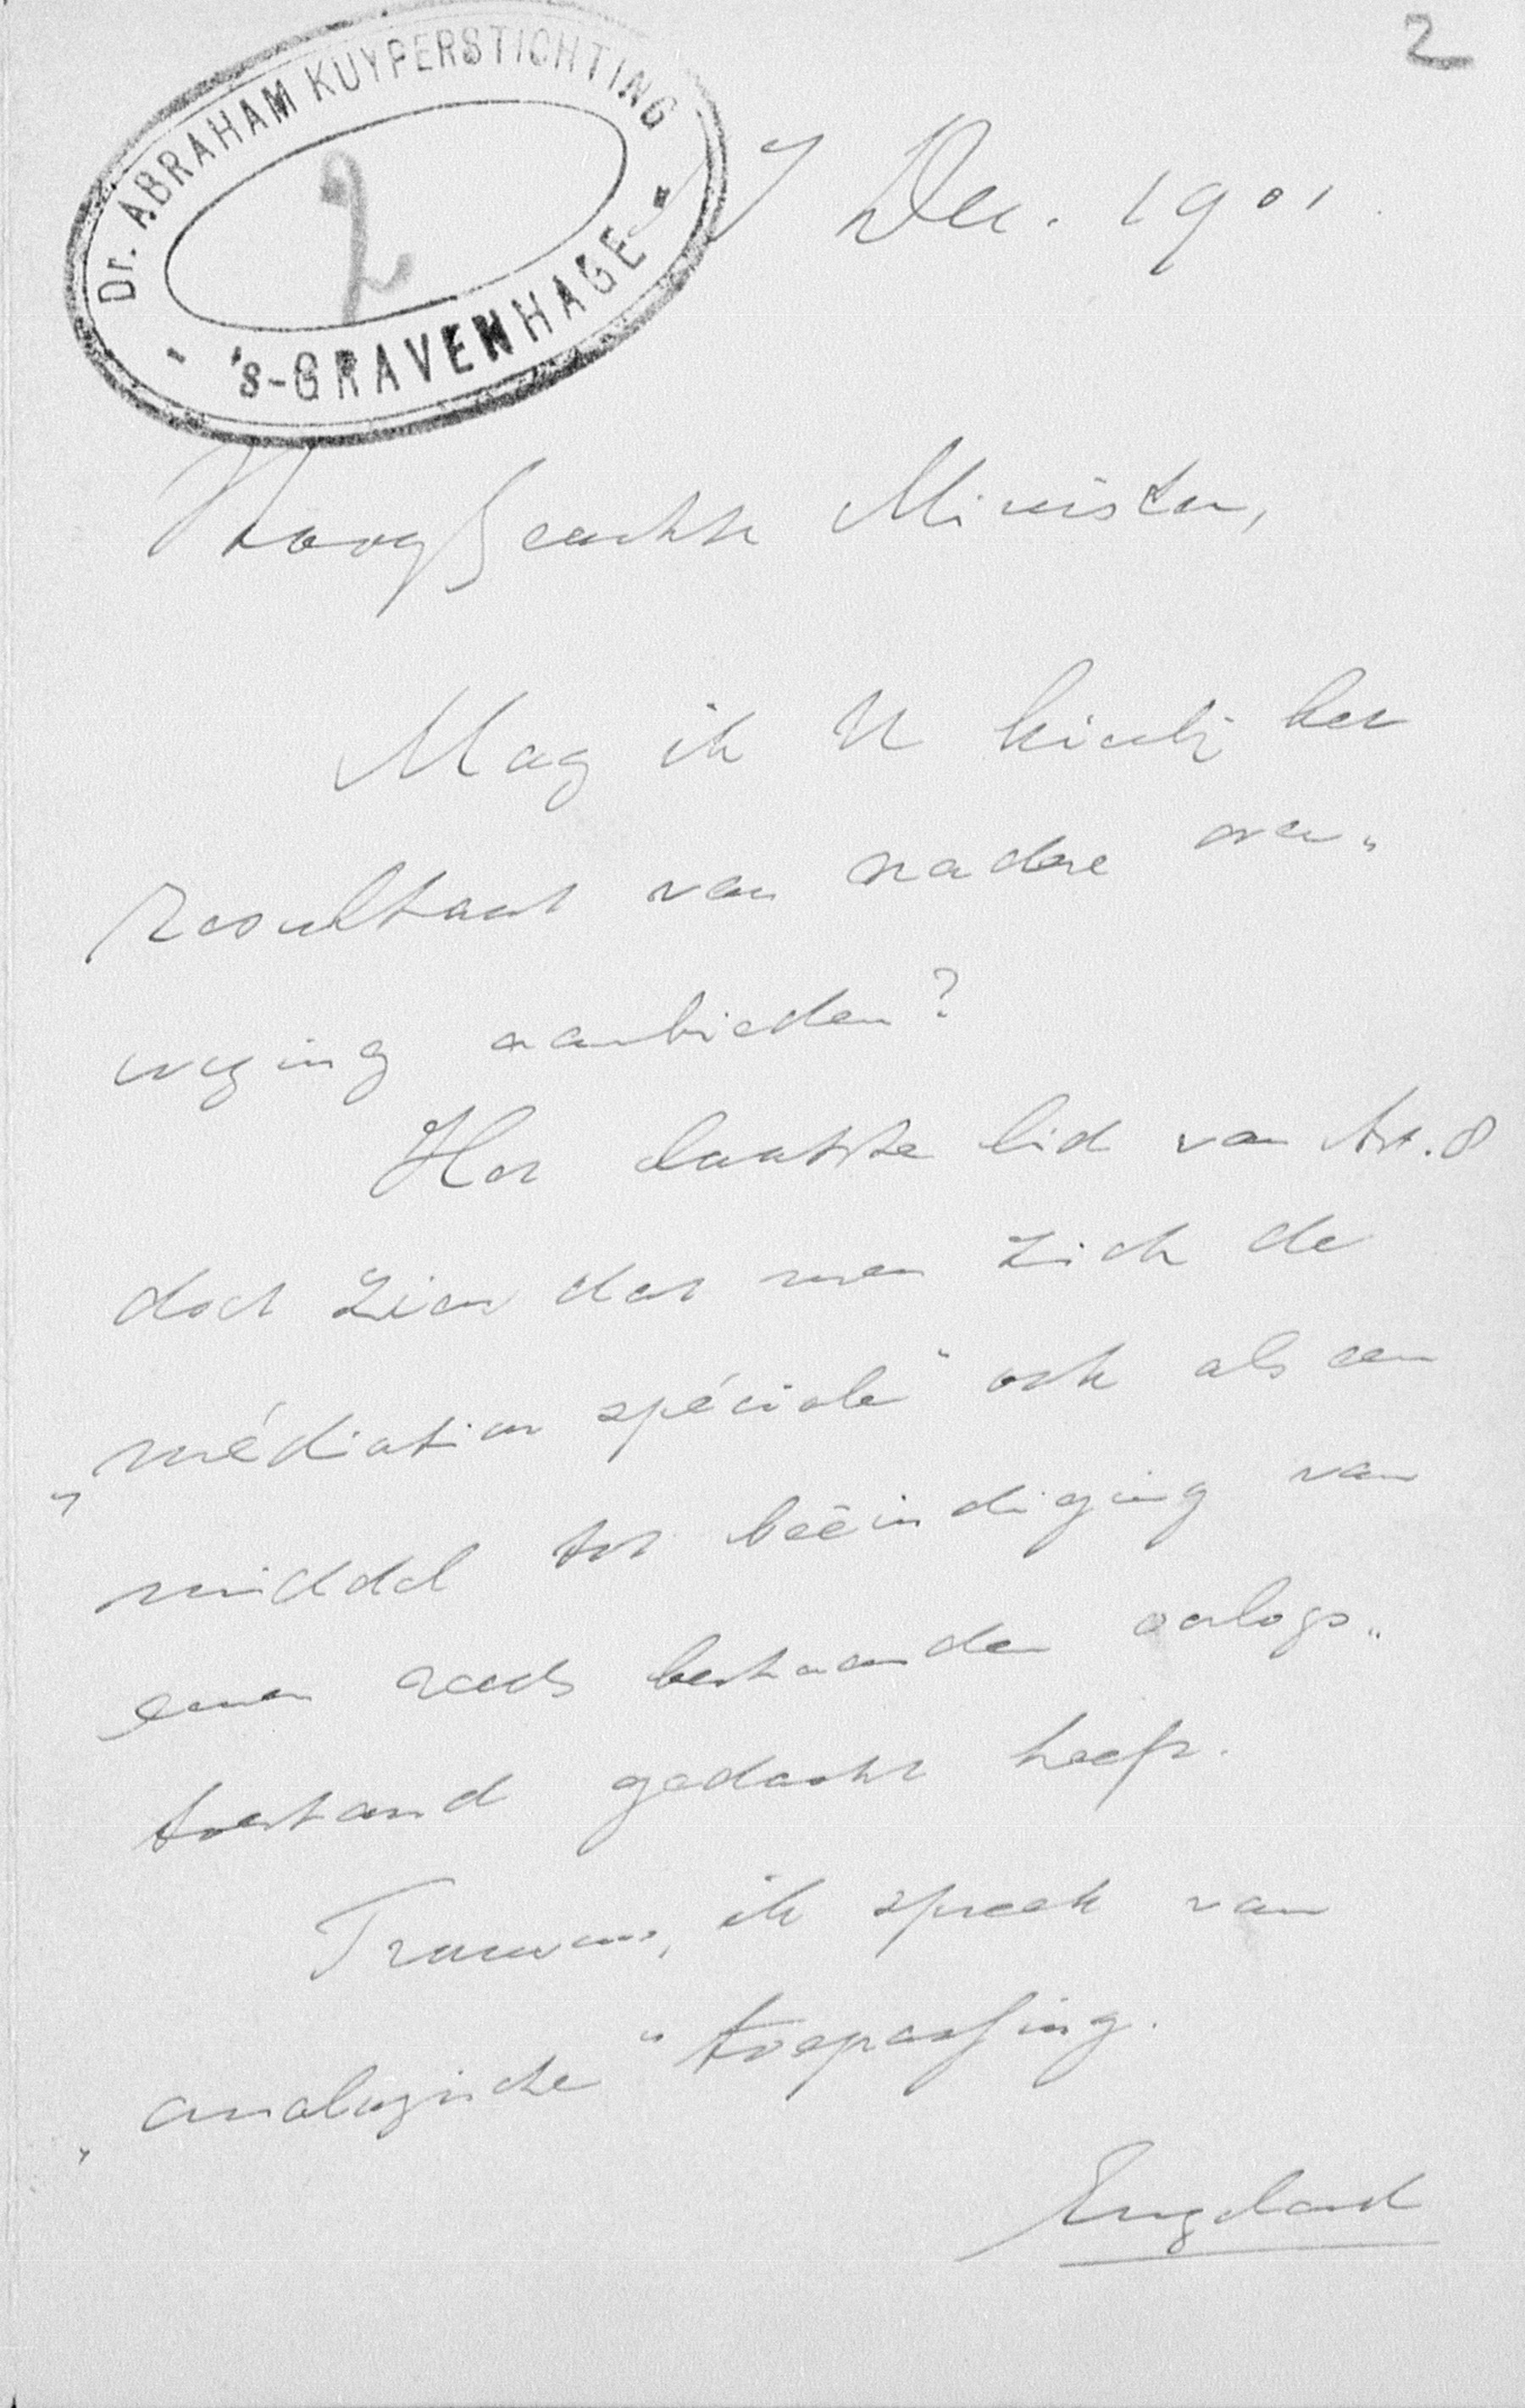 2
Dr. ABRAHAM KUYPERSTICHTING
2
- 's-GRAVENHAGE -
7 Dec. 1901.
HoogGeachte Minister,
Mag ik U hierbij het
resultaat van nadere over„
weging aanbieden?
Het laatste lid van Art. 8
doet zien dat men zich de
„médiation spéciale" ook als een
middel tot beëindiging van
eenen reeds bestaanden oorlogs„
toestand gedacht heeft.
Trouwens, ik spreek van
„analogische" toepassing.
Engeland